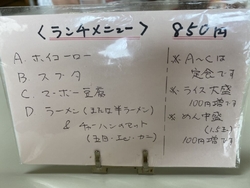 〈ランチメニュー〉 850円
A. ホイコーロー
B スブタ
C. マーボー豆腐
D ラーメン(または半ラーメン)
& チャーハンのセット
(五目・エビ・カニ)
※A～Cは
定食です
※ライス大盛
100円増です
※めん中盛
(1.5玉)
100円増です